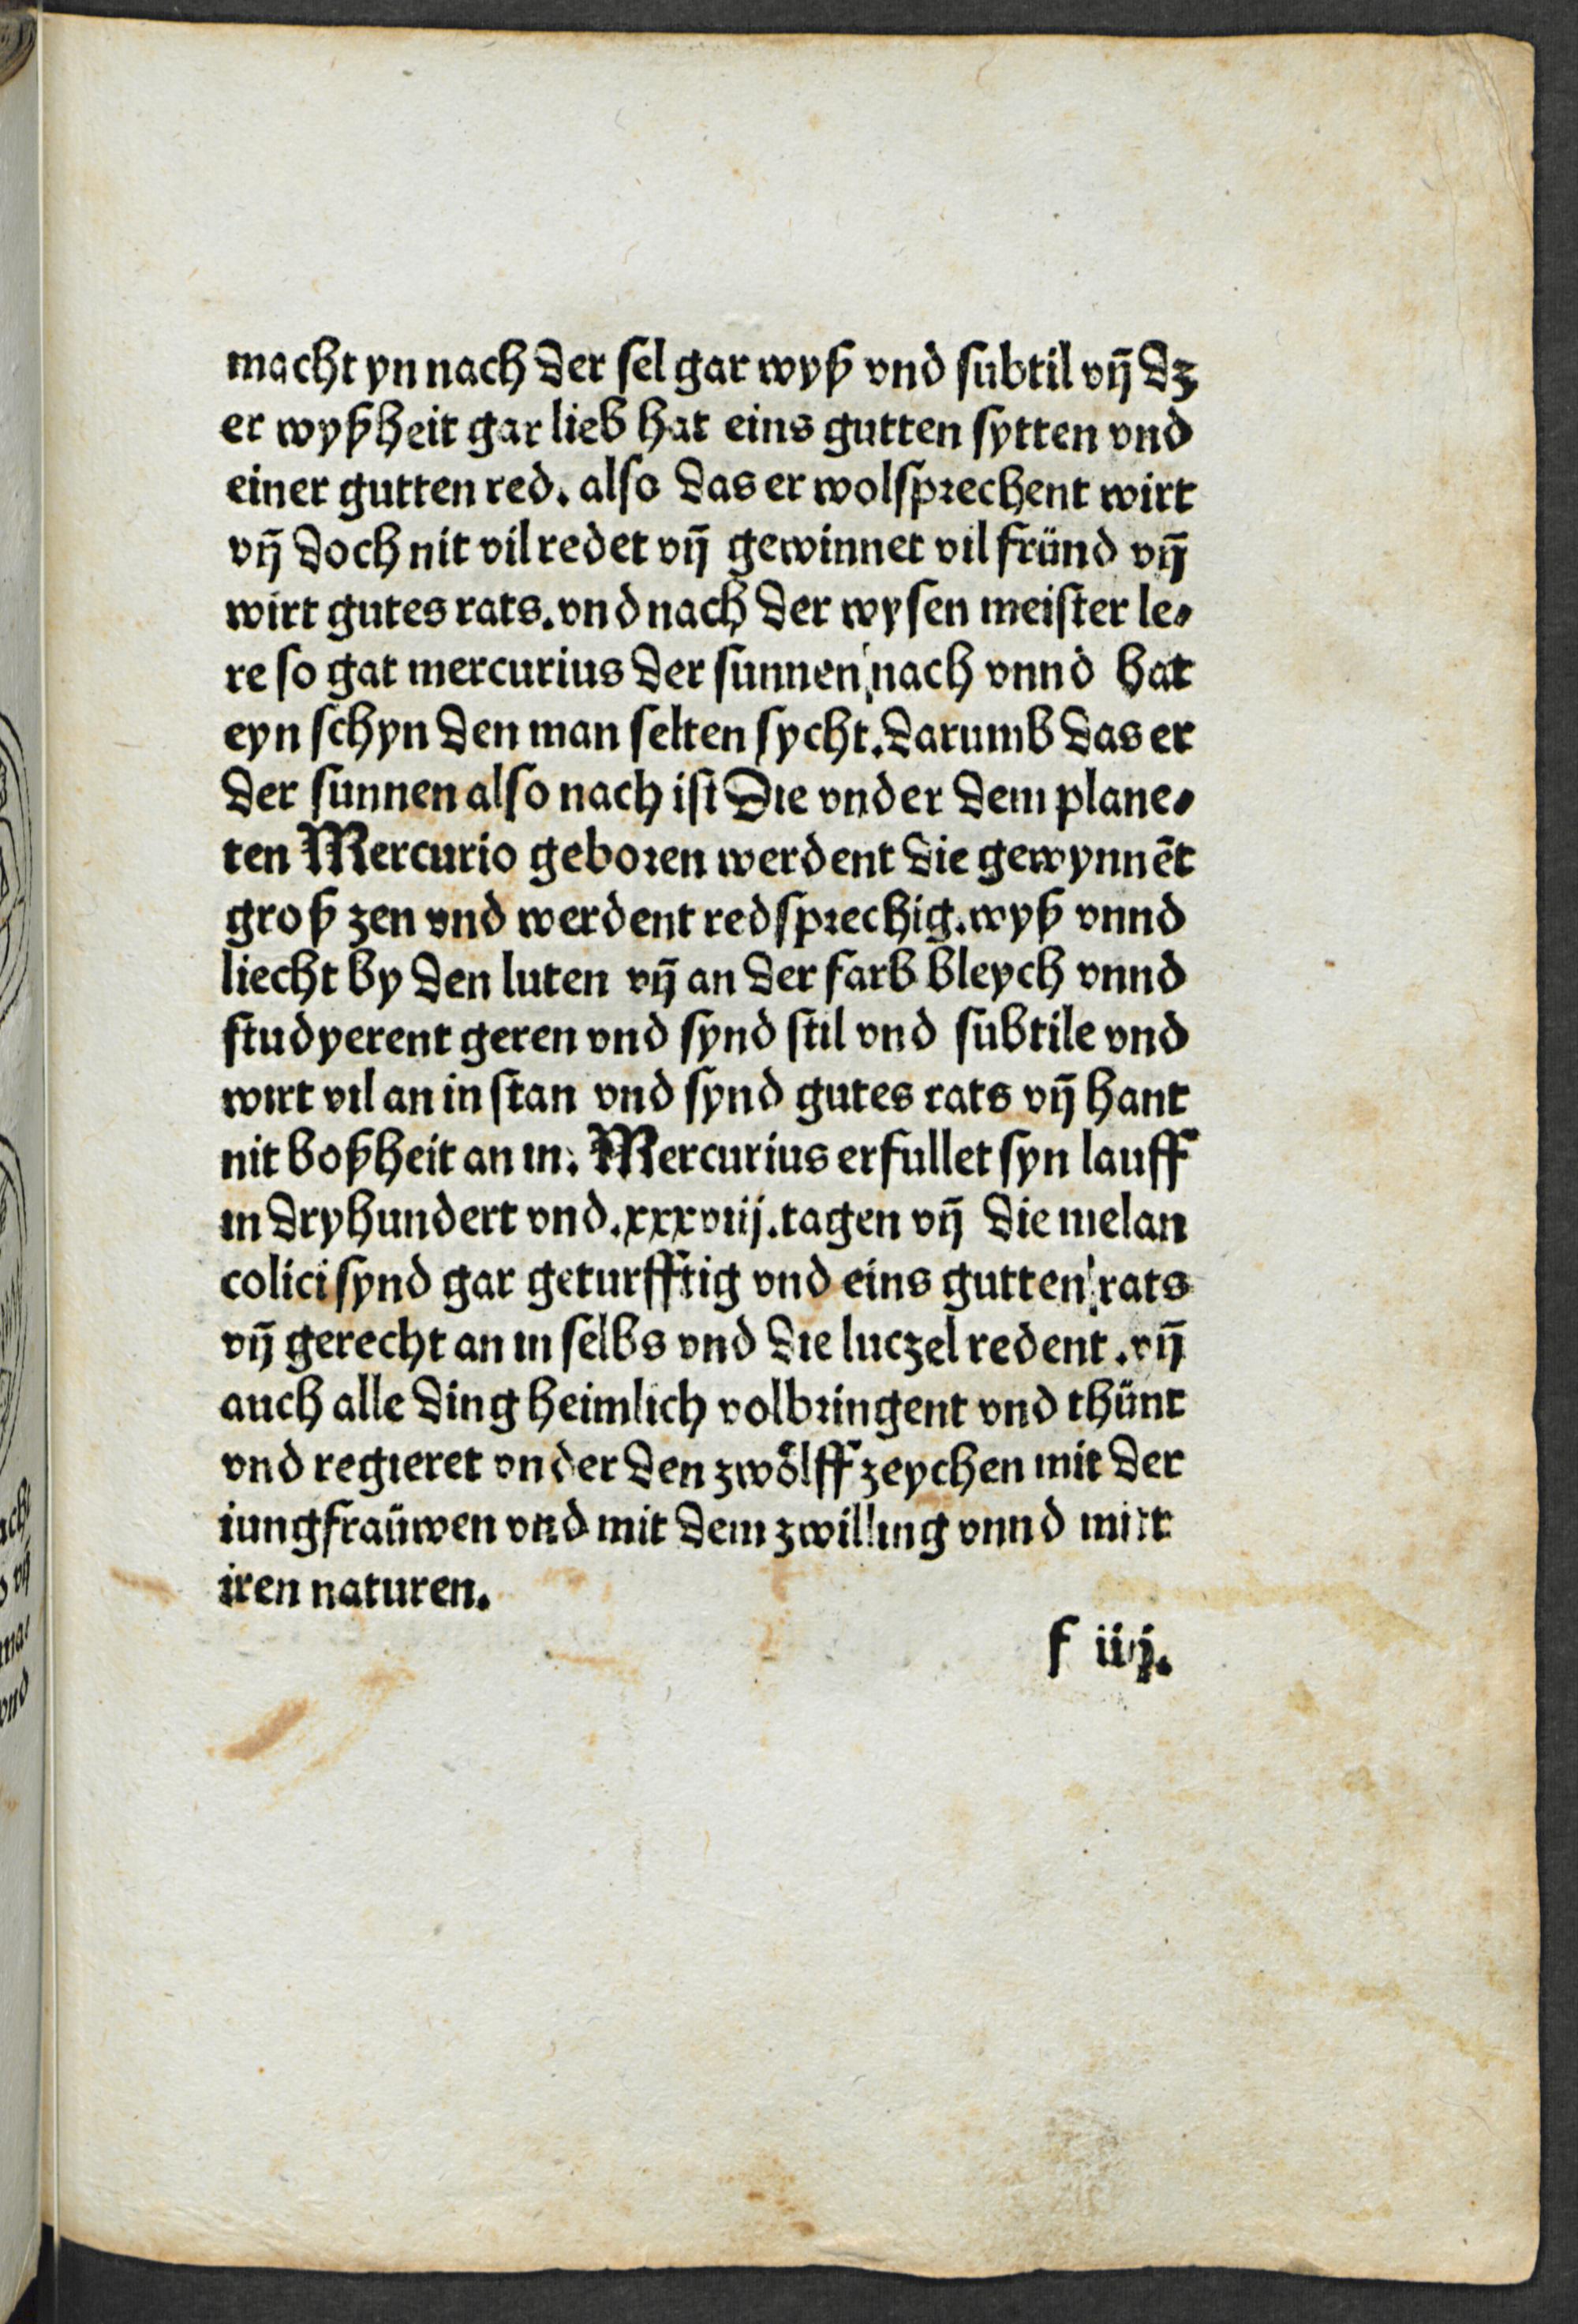 macht yn nach der sel gar wyß vnd subtil vn̄ dz
er wyßheit gar lieb hat eins gutten sytten vnd
einer gutten red. also das er wolsprechent wirt
vn̄ doch nit vil redet vn̄ gewinnet vil fründ vn̄
wirt gutes rats. vnd nach der wysen meister le⸗
re so gat mercurius der sunnen nach vnnd hat
eyn schyn den man selten sycht. darumb das er
der sunnen also nach ist Die vnder dem plane⸗
ten Mercurio geboren werdent die gewynnēt
groß zen vnd werdent redsprechig. wyß vnnd
liecht by den luten vn̄ an der farb bleych vnnd
studyerent geren vnd synd stil vnd subtile vnd
wirt vil an in stan vnd synd gutes rats vn̄ hant
nit boßheit an in. Mercurius erfullet syn lauff
in dryhundert vnd .xxxviij. tagen vn̄ die melan
colici synd gar geturfftig vnd eins gutten rats
vn̄ gerecht an in selbs vnd die luczel redent. vn̄
auch alle ding heimlich volbringent vnd thünt
vnd regieret vnder den zwölff zeychen mit der
iungfraüwen vnd mit dem zwilling vnnd mitt
iren naturen.
f iiij.